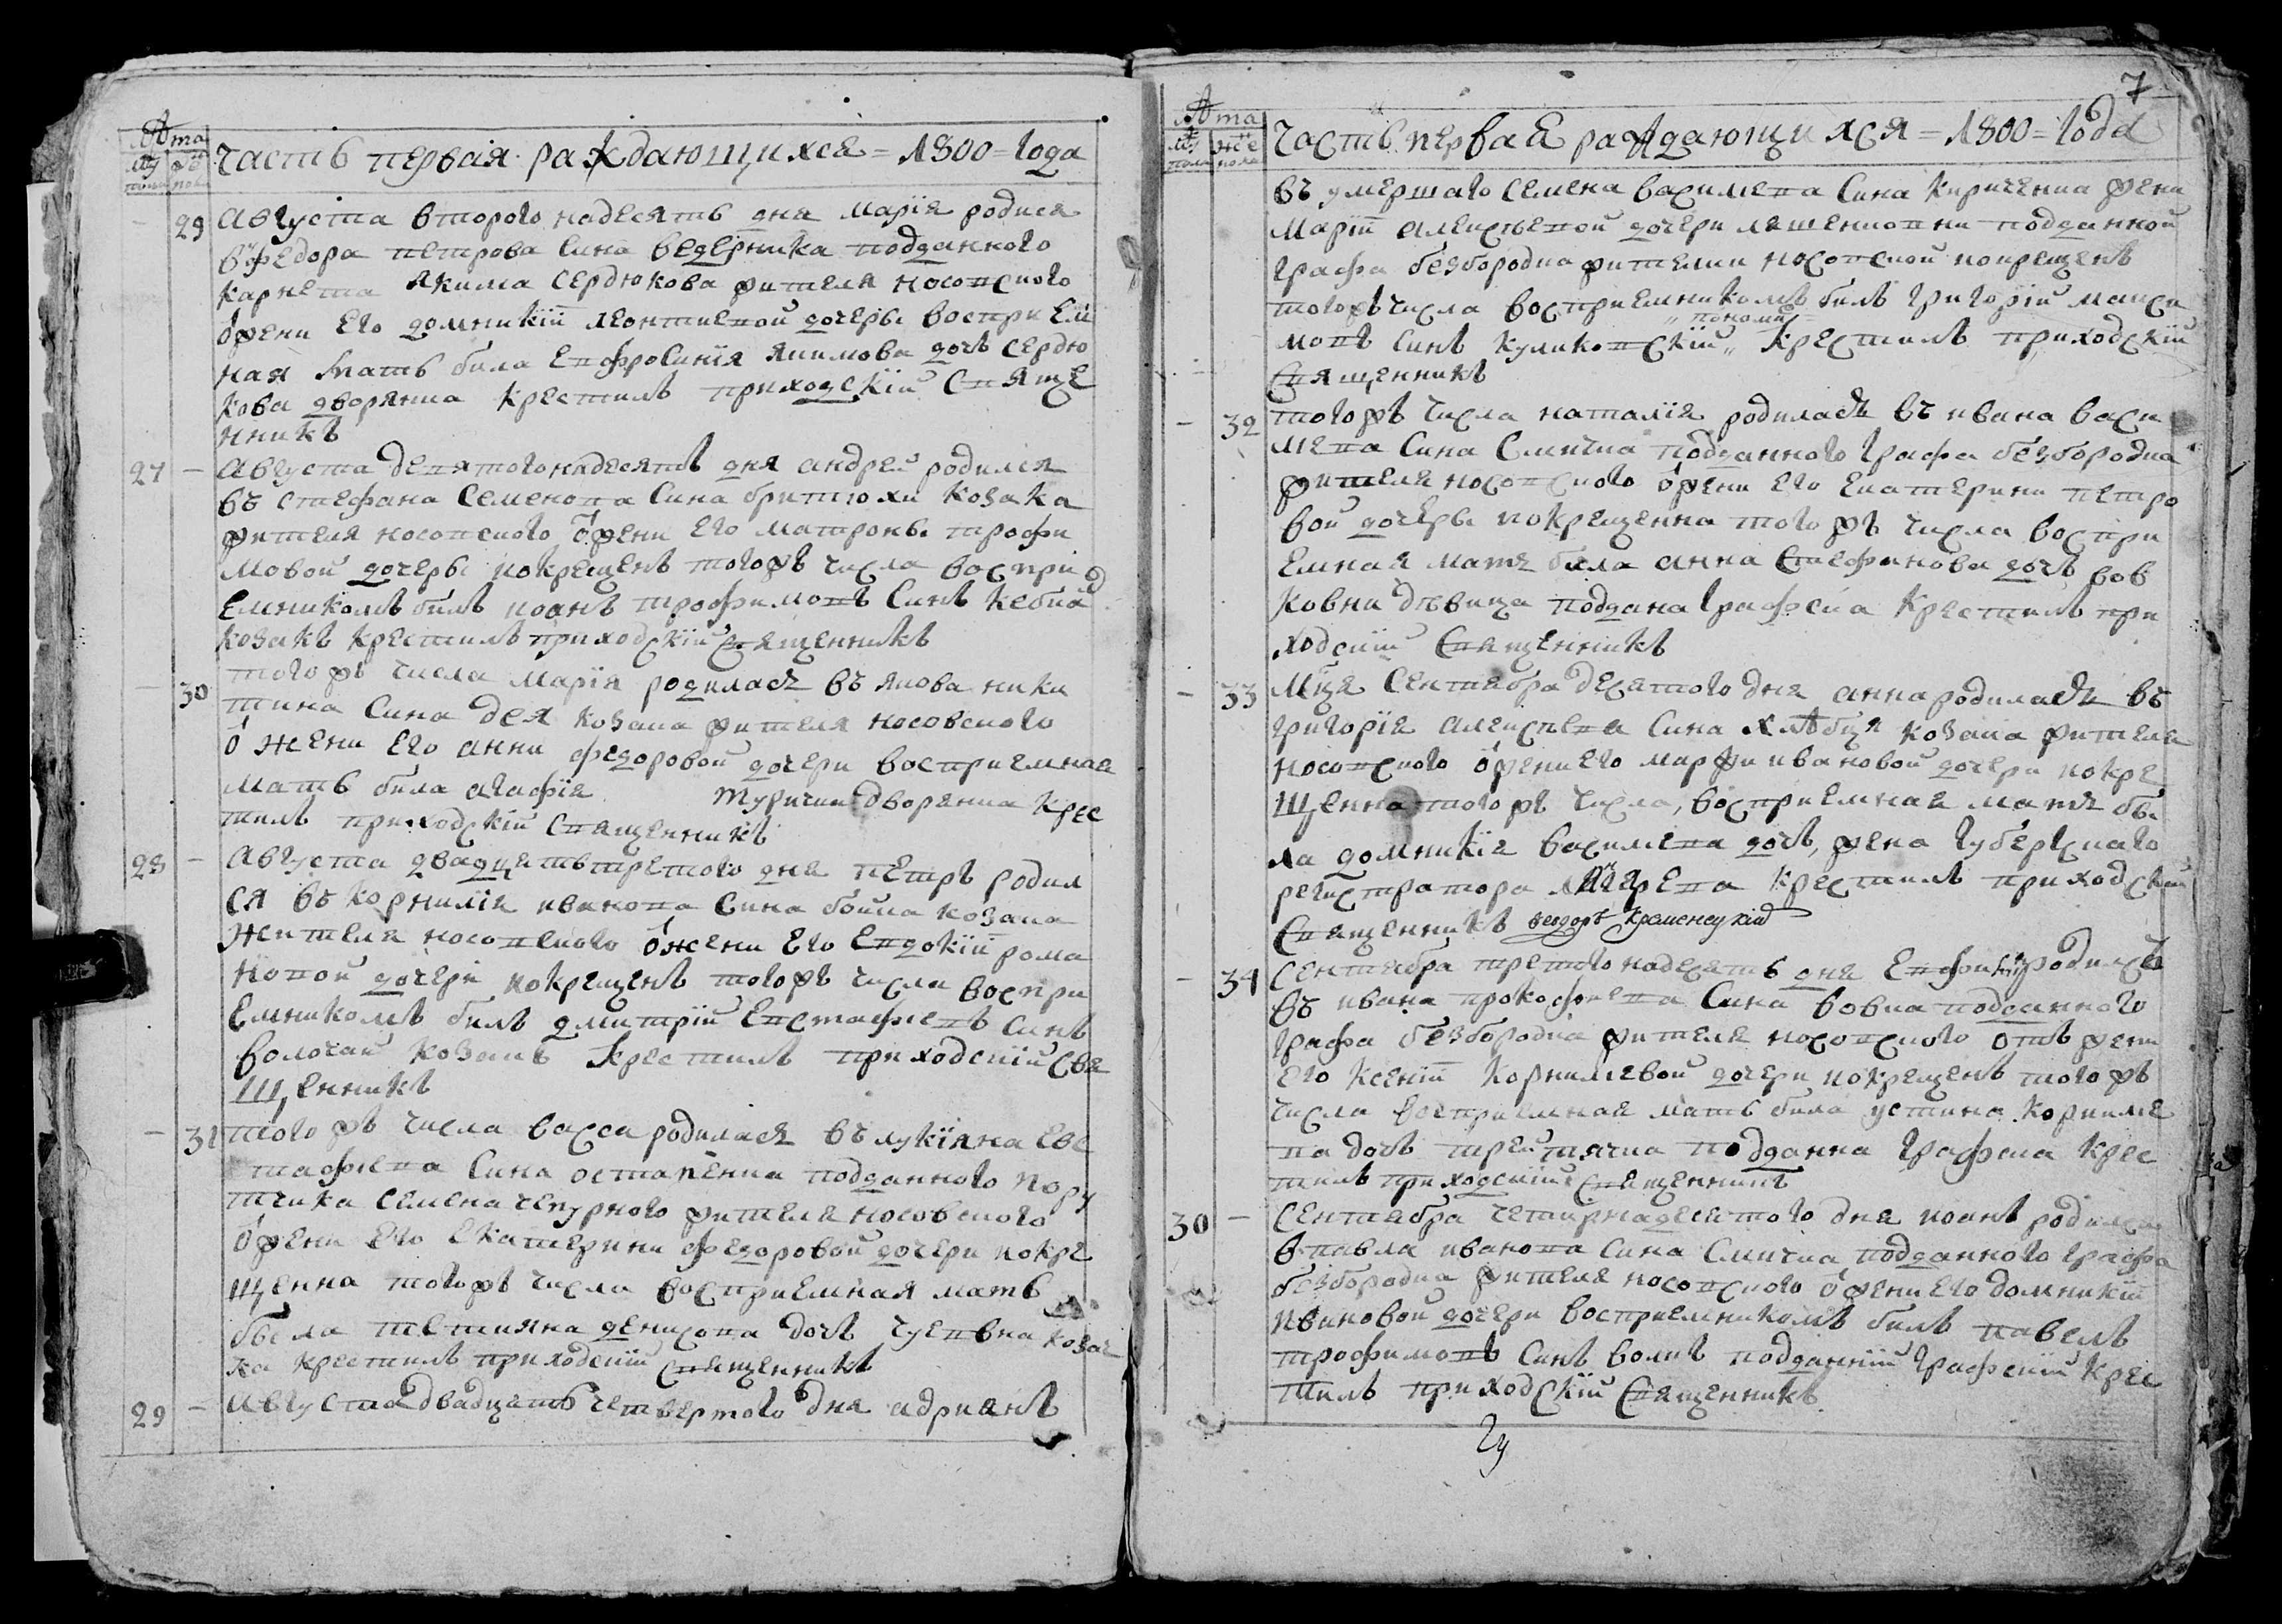 Лѣта
му жѣ
пола пола
Часть первая раждающихся = 1800 = года
29 Августа второго надесять дня марія родися
в Федора петрова сина ведерника подданного
карнета якима сердюкова жителя носовского
ѿ жени его домникіи леонтиевой дочеры восприем
ная мать била Евфросинія якимова дочъ сердю
кова дворянка крестилъ приходскій свяще
нникъ
27 – Августа девятогонадесять дня андрей родился
въ стефана семенова сина бритюхи козака
жителя носовского ѿ жени его матроны трофи
мовой дочеры покрещенъ тогожъ числа воспри
емникомъ билъ иоанъ трофимовъ синъ кебка
козакъ крестилъ приходскій священникъ
– 30 того жъ числа марія родиласѧ въ якова ники
тина сина дея козака жителя носовского
ѿ жени его анни федоровой дочери восприемная
мать била агафія туричин дворянка крес
тилъ приходскій священникъ
28 – Августа двадцеть третого дня петръ родил
ся въ корнилія иванова сина бойка козака
жителя носовского ѿ жени его евдокіи рома
новой дочери покрещенъ тогожъ числа воспри
емникомъ билъ дмитрій евстафиевъ синъ
волочай козакъ крестилъ приходскій свя
щенникъ
– 31 того жъ числа васса родилася въ лукіяна евс
тафиева сина остапенка подданного пору
тчика семена чепурного жителя носовского
ѿ жени его екатерини федоровой дочери покре
щенна тогожъ числа восприемная мать
была тетияна денисова дочъ чуевна козач
ка крестилъ приходскій священникъ
29 – Августа двадцать четвертого дня адриянъ
7
Лѣта
му жѣ
пола пола
Часть первая раждающихся = 1800 = года
въ умершаго семена василиева сина кириченка жени
маріи алексѣевой дочери ляшенковни подданной
графа безбородка жителки носовской покрещенъ
тогожъ числа восприемникомъ билъ григорій макси
мовъ синъ куликовскій „пономар„ крестилъ приходскій
священникъ
– 32 тогожъ числа наталія родиласѧ въ ивана васи
лиева сина сличка подданного графа безбородка
жителя носовского ѿ жени его екатерини петро
вой дочеры покрещенна того жъ числа воспри
емная мать била анна стефанова дочъ вов
ковна дѣвица поддана графска крестилъ при
ходскій священникъ
– 33 мця сентября десятого дня анна родиласѧ въ
григорія алексѣева сина хлѣбця козака жителя
носовского ѿ жени его марфи ивановой дочери покре
щенна того жъ числа, восприемная мать бы
ла домникія василиева дочъ, жена губернскаго
регистратора крестилъ приходскій
священникъ Ѳеодоръ Кременецкій
– 34 сентября третогонадесять дня евфимій родилсѧ
въ ивана прокофиева сина вовка подданного
графа безбородка жителя носовского отъ жени
его ксеніи корнилиевой дочери покрещенъ того жъ
числа восприемная мать била устина корнилие
ва дочъ трейтячка подданна графска крес
тилъ приходскій священникъ
30 – сентября четирнадесятого дня иоанъ родился
в павла иванова сина сличка подданного графа
безбородка жителя носовского ѿ жени его домникіи
ивановой дочери восприемникомъ билъ павелъ
трофимовъ синъ воликъ подданній графскій крес
тилъ приходскій священникъ